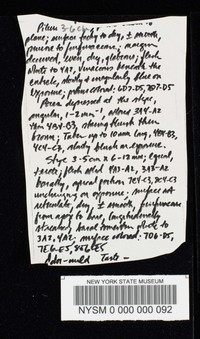 Pileus 3-6 cm
plane; surface tacky to dry, ± smooth,
pruinose to furfuraceous; margin
decurved, even, dry, glabrous; flesh
white to 4A2, vinaceous beneath the
cuticle, slowly & unevenly blue on
exposure; surface colored: 6D7-D5, 7D7-D5
Pores depressed at the stipe,
angular, 1-2 mm; yellow 3A4-A2
4B4, staining bluish then
brown; Tubes up to 10 mm long, 4B4-B3,
4C4-C3, slowly bluish on exposure.
Stipe 3-5 cm x 6-12 mm; equal,
terete; flesh solid 4A3-A2, 3A3-A2
basally, apical portion
unchanging on exposure; surface not
reticulate, dry, ± smooth, furfuraceous
from apex to base, longitudinally
streaked; basal tomentum white to
3A2, 4A2; surface colored: 7D6-D5,
7E6-E5, 8E6-E5
Odor-mild Taste-
NEW YORK STATE MUSEUM
NYSM 0 000 000 092